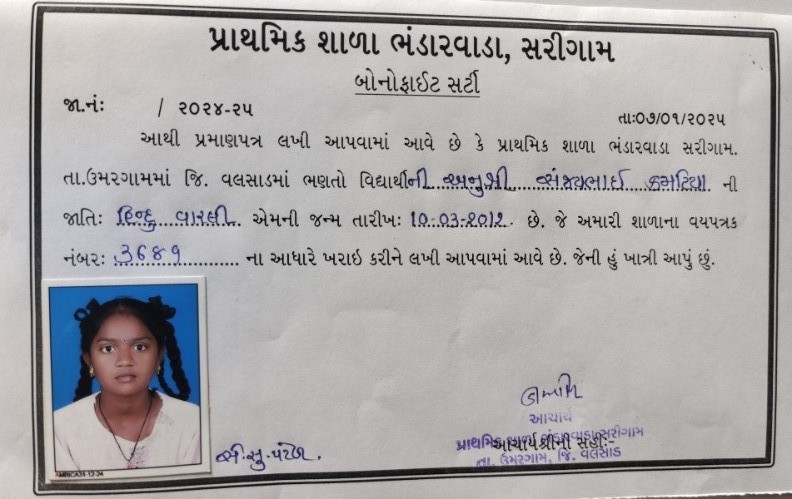 પ્રાથમિક શાળા ભંડારવાડા, સરીગામ
બોનોફાઈટ સર્ટી
જા.નં: / ૨૦૨૪-૨૫
તા:૦૭/૦૧/૨૦૨૫
આથી પ્રમાણપત્ર લખી આપવામાં આવે છે કે પ્રાથમિક શાળા ભંડારવાડા સરીગામ.
તા.ઉમરગામમાં જિ. વલસાડમાં ભણતો વિદ્યાર્થીની અનુશ્રી સંજયભાઈ કમટિયા ની
જાતિ: હિન્દુ વારલી એમની જન્મ તારીખ: 10-03-2012. છે. જે અમારી શાળાના વયપત્રક
નંબર: 3689 ના આધારે ખરાઈ કરીને લખી આપવામાં આવે છે. જેની હું ખાત્રી આપું છું.
આચાર્ય
પ્રાથમિક શાળા ભંડારવાડા સરીગામ
આચાર્યશ્રીની સહી:-
તા. ઉમરગામ, જિ. વલસાડ